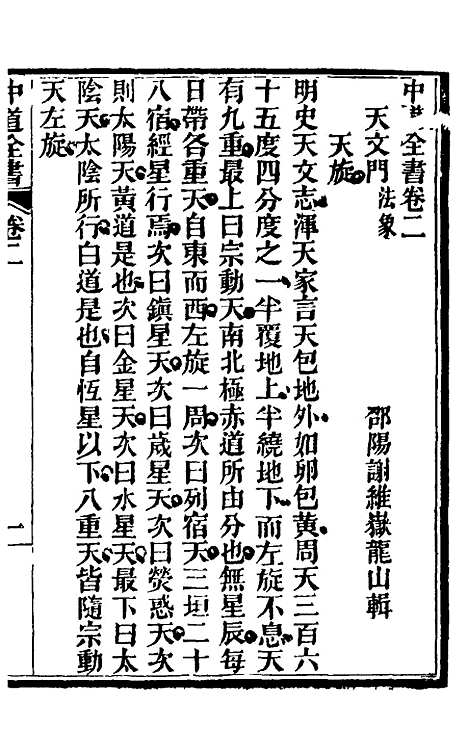 中道全書卷二
天文門 法象
邵陽謝維嶽龍山輯
天旋
明史天文志渾天家言天包地外如卵包黃周天三百六
十五度四分度之一半覆地上半繞地下而左旋不息天
有九重最上曰宗動天南北極赤道所由分也無星辰每
日帶各重天自東而西左旋一周次曰列宿天三垣二十
八宿經星行焉次曰鎮星天次曰歲星天次曰熒惑天次
則太陽天黃道是也次曰金星天次曰水星天最下曰太
陰天太陰所行白道是也自恆星以下八重天皆隨宗動
天左旋
中道全書 卷二 一